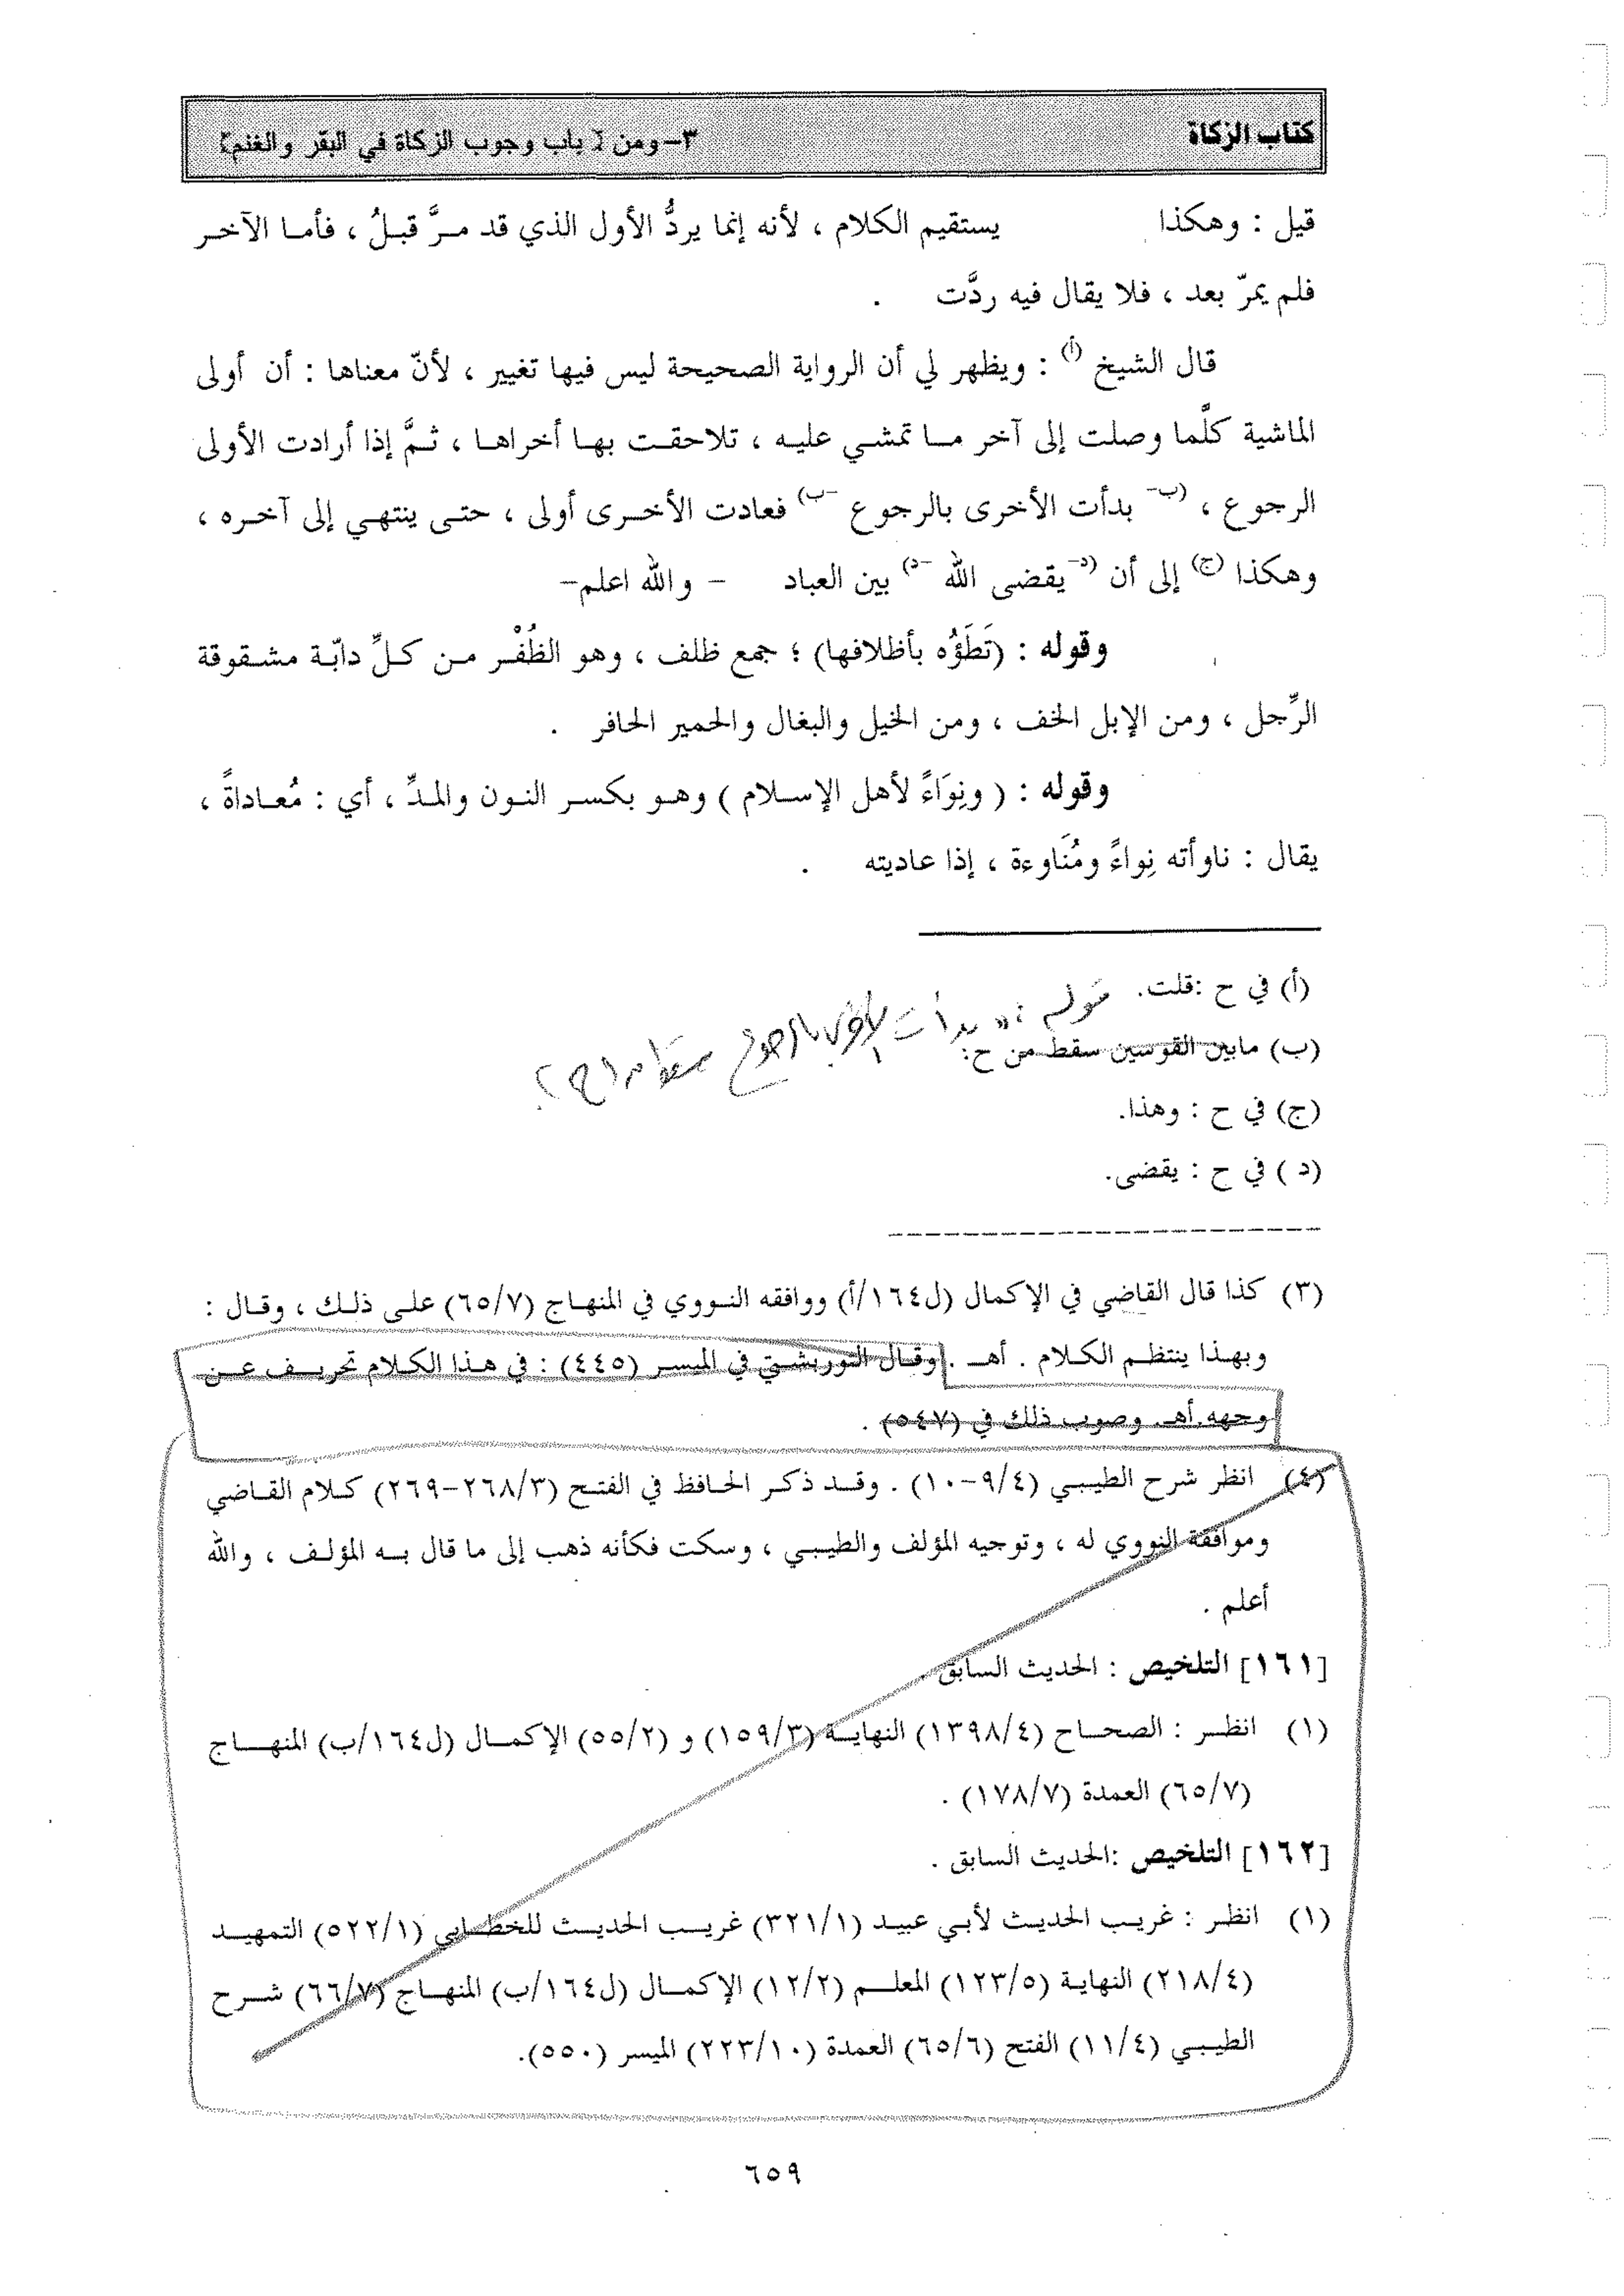 كتاب الزكاة
٣-ومن [ باب وجوب الزكاة في البقر والغنم]
قيل : وهكذا يستقيم الكلام ، لأنه إنما يردُّ الأول الذي قد مرَّ قبلُ ، فأما الآخر
فلم يمرّ بعد ، فلا يقال فيه ردَّت .
قال الشيخ (أ) : ويظهر لي أن الرواية الصحيحة ليس فيها تغيير ، لأنّ معناها : أن أولى
الماشية كلَّما وصلت إلى آخر ما تمشي عليه ، تلاحقت بها أخراها ، ثمَّ إذا أرادت الأولى
الرجوع ، (ب- بدأت الأخرى بالرجوع -ب) فعادت الأخرى أولى ، حتى ينتهي إلى آخره ،
وهكذا (ج) إلى أن (د- يقضى الله -د) بين العباد - والله اعلم-
وقوله : (تَطَؤُه بأظلافها) ؛ جمع ظلف ، وهو الظُفْر من كلِّ دابّة مشقوقة
الرِّجل ، ومن الإبل الخف ، ومن الخيل والبغال والحمير الحافر .
وقوله : ( ونِوَاءً لأهل الإسلام ) وهو بكسر النون والمدِّ ، أي : مُعاداةً ،
يقال : ناوأته نِواءً ومُنَاوءة ، إذا عاديته .
(أ) في ح :قلت.
قوله : " بدأت الأخرى بالرجوع سقط من (ح) .
(ب) مابين القوسين سقط من ح:
(ج) في ح : وهذا.
(د ) في ح : يقضى.
(٣) كذا قال القاضي في الإكمال (ل١٦٤/أ) ووافقه النووي في المنهاج (٦٥/٧) على ذلك ، وقال :
وبهذا ينتظم الكلام . أهـ . وقال التوربشتي في الميسر (٤٤٥) : في هذا الكلام تحريف عن
وجهه.أهـ. وصوب ذلك في (٥٤٧) .
(٤) انظر شرح الطيبي (٩/٤-١٠) . وقد ذكر الحافظ في الفتح (٢٦٨/٣-٢٦٩) كلام القاضي
وموافقة النووي له ، وتوجيه المؤلف والطيبي ، وسكت فكأنه ذهب إلى ما قال به المؤلف ، والله
أعلم .
[١٦١] التلخيص : الحديث السابق .
(١) انظر : الصحاح (١٣٩٨/٤) النهاية (١٥٩/٣) و (٥٥/٢) الإكمال (ل١٦٤/ب) المنهاج
(٦٥/٧) العمدة (١٧٨/٧) .
[١٦٢] التلخيص :الحديث السابق .
(١) انظر : غريب الحديث لأبي عبيد (٣٢١/١) غريب الحديث للخطابي (٥٢٢/١) التمهيد
(٢١٨/٤) النهاية (١٢٣/٥) المعلم (١٢/٢) الإكمال (ل١٦٤/ب) المنهاج (٦٦/٧) شرح
الطيبي (١١/٤) الفتح (٦٥/٦) العمدة (٢٢٣/١٠) الميسر (٥٥٠).
٦٥٩